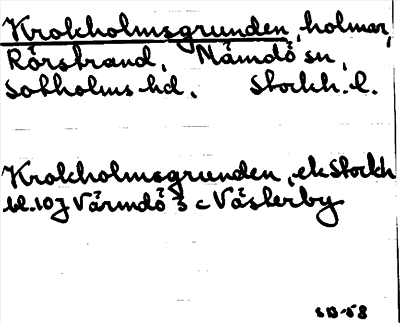 Krokholmsgrunden, holmar,
Rörstrand, Nämdö sn,
Sotholms hd. Stockh. l.
Krokholmsgrunden, ek Stockh
bl. 10 J Värmdö 3 c Västerby
SD-58